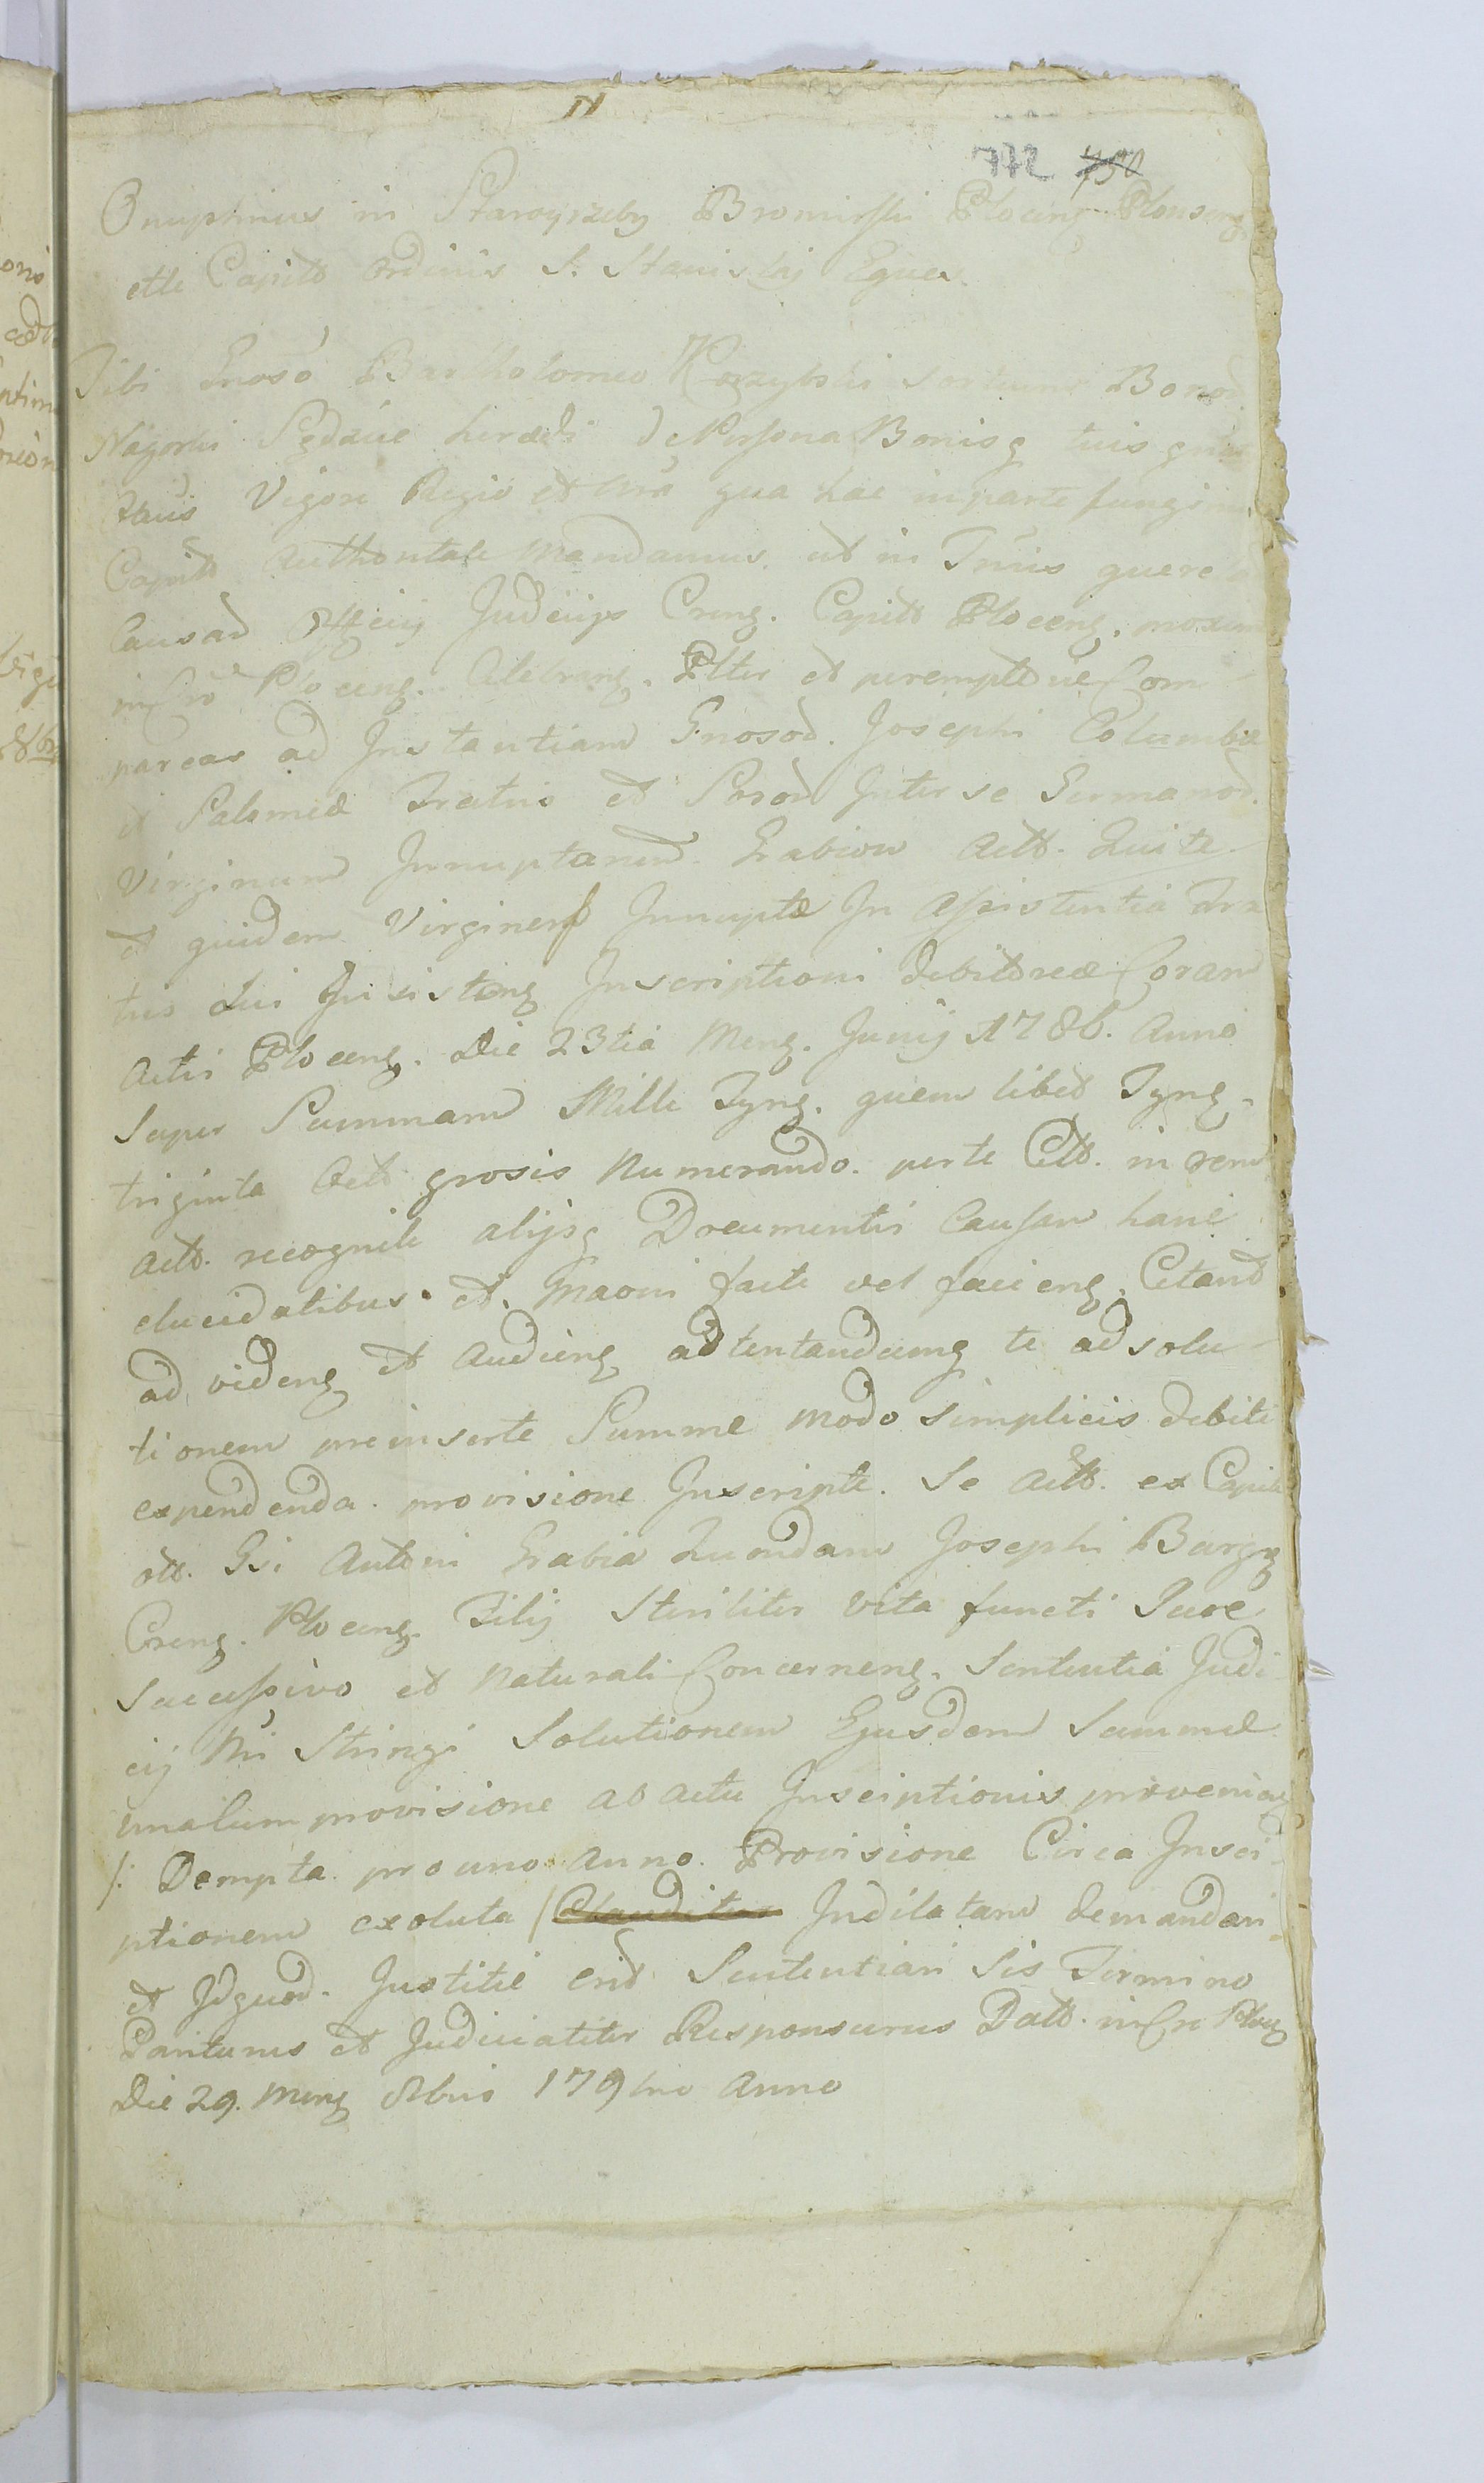 N
772 750
Onuphrius in Starogrzeby Bromirski Plocenq Plonsenq
ette Capitt Ordinis S. Stanislaj Eques.
Tibi Gnoso Bartholomeo Korzybski sortium Bonoɖ
Nagorki heredi De Persona Bonisq tuis
Vigore Regio et Nra qua hac in parte fungimur
Capitt Authoritate Mandamus. ut in Tmis querelaɖ
Causaɖ Offcij Judcijs Crenq. Capitt Plocenq. proxime
in Cro Plocenq. Celebranq. Plter et perempttrie Com
pareas ad Instantiam Gnosoɖ. Josephi Columbæ
et Salomeæ Fratris et Soroɖ Inter se Germanoɖ.
Virginum Innuptarum. Grabiow Actt.
et quidem Virgines Innuptæ In Assistentia Fra
tris Sui Insisteng Inscriptioni debittreæ Coram
Actis Plocenq. Die 23tia Menq. Junij 1786. Anno
Super Summam Mille Tynq. quem libet Tynq.
triginta Octo grosis Numerando. per te Citt. in rem
Actt. recognite alijsq Documentis Causam hanc
elucidatibus. et. Maoni facte vel facienq. Citand
ad videnq et Audienq adtentandumq te ad solu
tionem preinserte Summe modo simplicis debiti
expendenda. provisione Inscripte. Se Actt. ex Capite
ott. Gsi Antoni Grabia Quondam Josephi Burgq
Crenq. Plocenq. Filij Steriliter vita functi Jure
Sucessivo et Naturali Concernenq. Sententia Judi
cij Nri Stringi Solutionem Ejusdem Summæ
unalum provisione ab actu Insciptionis provenien
/: Dempta pro uno Anno. Provisione Circa Insci
ptionem exoluta / Clauditur Indilatam demandari
et Idquod. Justitie erit Sententiari Sis Termino
Pariturus et Judicialiter Responsurus Datt. in Cro Plocq
Die 29. Menq 8bris 1791mo Anno